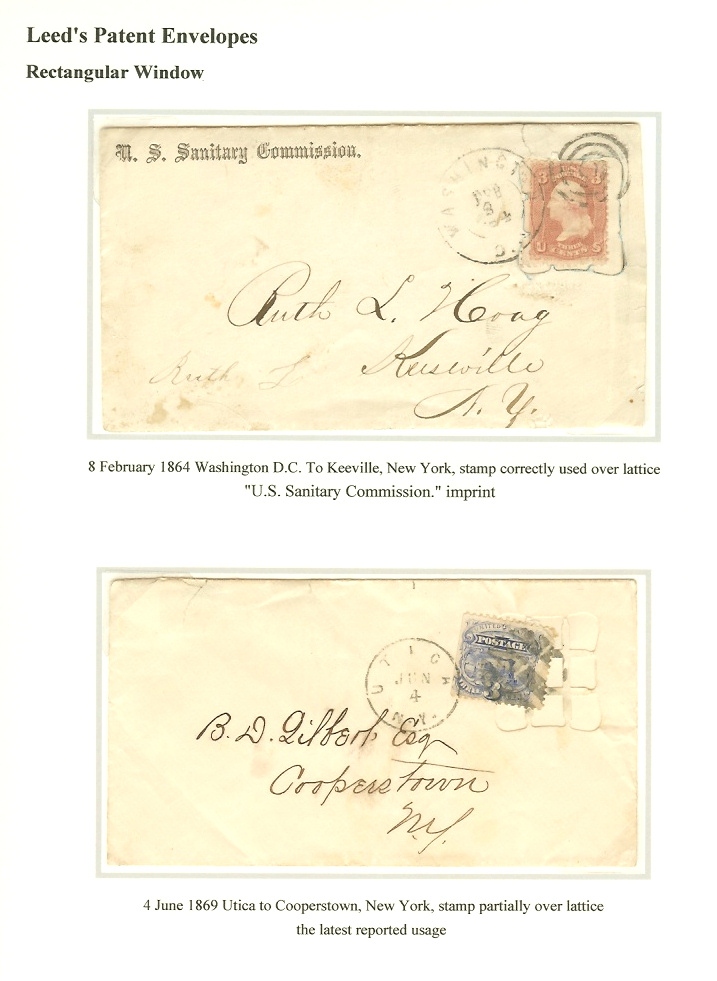 Leed's Patent Envelopes
Rectangular Window
U. S. Sanitary Commission.
WASHINGTON D.C.
FEB
8
3 3
U THREE CENTS S
Ruth L. Hoag
Keeseville
N. Y.
Ruth L
8 February 1864 Washington D.C. To Keeville, New York, stamp correctly used over lattice
"U.S. Sanitary Commission." imprint
POSTAGE
3
UTICA
JUN
4
N.Y.
B. D. Gilbert Esq
Cooperstown
N.Y.
4 June 1869 Utica to Cooperstown, New York, stamp partially over lattice
the latest reported usage